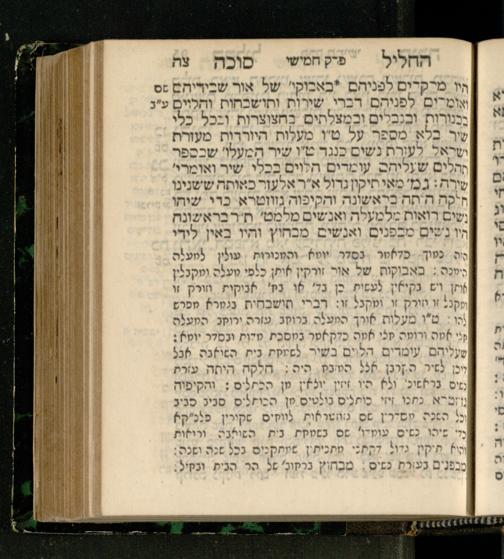 החליל פרק חמישי סוכה צח
היו מרקדים לפניהם *באבוקי׳ של אור שבידיהם שם
ואומרים לפניהם דברי שירות ותושבחות והלוים ע״ב
בכנורות ובנבלים ובמצלתים בחצוצרות ובכל כלי
שיר בלא מספר על ט״ו מעלות היורדות מעזרת
ישראל לעזרת נשים כנגד ט״ו שיר המעלו׳ שבספר
תהלים שעליהם עומדים הלוים בכלי שיר ואומרי׳
שירה: גמ׳ מאי תיקון גדול א״ר אלעזר כאותה ששנינו
חלקה היתה בראשונה והקיפוה גזוזטרא כדי שיהו
נשים רואות מלמעלה ואנשים מלמט׳ ת״ר בראשונה
היו נשים מבפנים ואנשים מבחוץ והיו באין לידי
היה גבוך כדאמר בסדר יומא והמנורות עולין למעלה
הימנה: באבוקות של אור זורקין אותן כלפי מעלה ומקבלין
אותן ויש בקיאין לעשות כן בד׳ או בח׳ אבוקות וזורק זו
ומקבל זו וזורק זו ומקבל זו: דברי תושבחות בגמרא מפרש
להו: ט״ו מעלות אורך המעלה ברוחב עזרה ורוחב המעלה
חצי אמה ורומה חצי אמה כדקאמר במסכת מדות ובסדר יומא:
שעליהם עומדים הלוים בשיר לשמחת בית השואבה אבל
דוכן לשיר הקרבן אצל המזבח היה: חלקה היתה עזרת
נשים בראשונ׳ ולא היו זיזין יוצאין מן הכתלים: והקיפוה
גזוזטרא נתנו זיזי כותלים בולטים מן הכותלים סביב סביב
וכל השנה מסדרין שם גזוזטראות לווחים שקורין פלנ״קא
כדי שיהו נשים עומדו׳ שם בשמחת בית השואבה ורואות
והוא תיקון גדול דקתני מתניתין שמתקנים בכל שנה ושנה:
מבפנים בעזרת נשים: מבחוץ ברחוב׳ של הר הבית ובחיל: